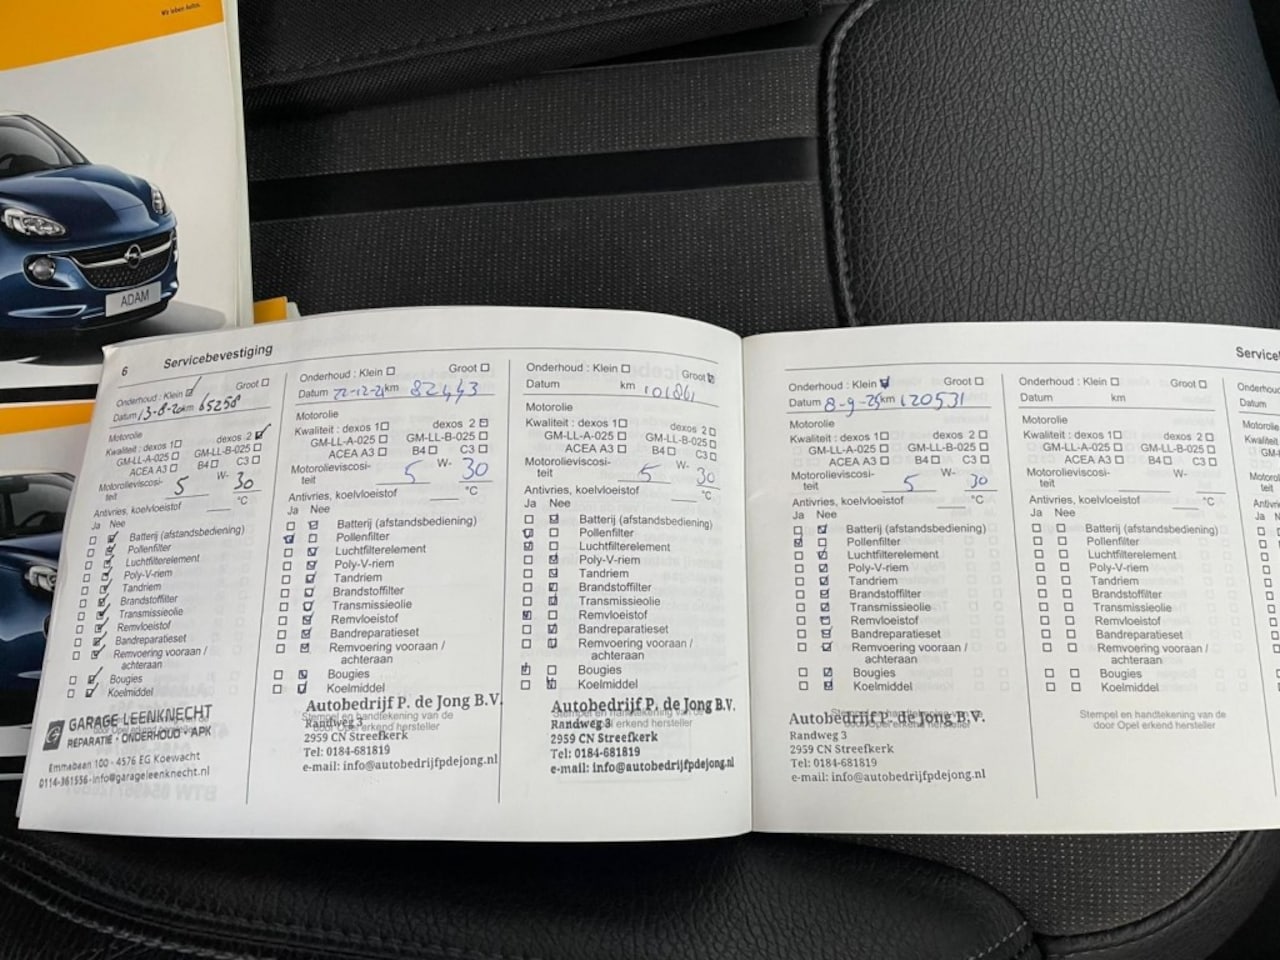 Wir leben Autos.
ADAM
6 Servicebevestiging
Onderhoud : Klein Groot
Datum 13-8-20 km 65258
Motorolie
Kwaliteit : dexos 1 dexos 2
GM-LL-A-025 GM-LL-B-025
ACEA A3 B4 C3
Motorolieviscosi-
teit 5 W- 30
Antivries, koelvloeistof °C
Ja Nee
Batterij (afstandsbediening)
Pollenfilter
Luchtfilterelement
Poly-V-riem
Tandriem
Brandstoffilter
Transmissieolie
Remvloeistof
Bandreparatieset
Remvoering vooraan /
achteraan
Bougies
Koelmiddel
GARAGE LEENKNECHT
REPARATIE · ONDERHOUD · APK
Emmabaan 100 - 4576 EG Koewacht
0114-361556-info@garageleenknecht.nl
Onderhoud : Klein Groot
Datum 22-12-21 km 82443
Motorolie
Kwaliteit : dexos 1 dexos 2
GM-LL-A-025 GM-LL-B-025
ACEA A3 B4 C3
Motorolieviscosi-
teit 5 W- 30
Antivries, koelvloeistof °C
Ja Nee
Batterij (afstandsbediening)
Pollenfilter
Luchtfilterelement
Poly-V-riem
Tandriem
Brandstoffilter
Transmissieolie
Remvloeistof
Bandreparatieset
Remvoering vooraan /
achteraan
Bougies
Koelmiddel
Autobedrijf P. de Jong B.V.
Stempel en handtekening van de
door Opel erkend hersteller
Randweg 3
2959 CN Streefkerk
Tel: 0184-681819
e-mail: info@autobedrijfpdejong.nl
Onderhoud : Klein Groot
Datum km 101861
Motorolie
Kwaliteit : dexos 1 dexos 2
GM-LL-A-025 GM-LL-B-025
ACEA A3 B4 C3
Motorolieviscosi-
teit 5 W- 30
Antivries, koelvloeistof °C
Ja Nee
Batterij (afstandsbediening)
Pollenfilter
Luchtfilterelement
Poly-V-riem
Tandriem
Brandstoffilter
Transmissieolie
Remvloeistof
Bandreparatieset
Remvoering vooraan /
achteraan
Bougies
Koelmiddel
Autobedrijf P. de Jong B.V.
Stempel en handtekening van de
door Opel erkend hersteller
Randweg 3
2959 CN Streefkerk
Tel: 0184-681819
e-mail: info@autobedrijfpdejong.nl
Onderhoud : Klein Groot
Datum 8-9-25 km 120531
Motorolie
Kwaliteit : dexos 1 dexos 2
GM-LL-A-025 GM-LL-B-025
ACEA A3 B4 C3
Motorolieviscosi-
teit 5 W- 30
Antivries, koelvloeistof °C
Ja Nee
Batterij (afstandsbediening)
Pollenfilter
Luchtfilterelement
Poly-V-riem
Tandriem
Brandstoffilter
Transmissieolie
Remvloeistof
Bandreparatieset
Remvoering vooraan /
achteraan
Bougies
Koelmiddel
Autobedrijf P. de Jong B.V.
Stempel en handtekening van de
door Opel erkend hersteller
Randweg 3
2959 CN Streefkerk
Tel: 0184-681819
e-mail: info@autobedrijfpdejong.nl
Onderhoud : Klein Groot
Datum km
Motorolie
Kwaliteit : dexos 1 dexos 2
GM-LL-A-025 GM-LL-B-025
ACEA A3 B4 C3
Motorolieviscosi-
teit W-
Antivries, koelvloeistof °C
Ja Nee
Batterij (afstandsbediening)
Pollenfilter
Luchtfilterelement
Poly-V-riem
Tandriem
Brandstoffilter
Transmissieolie
Remvloeistof
Bandreparatieset
Remvoering vooraan /
achteraan
Bougies
Koelmiddel
Stempel en handtekening van de
door Opel erkend hersteller
Onderhou
Datum
Ja